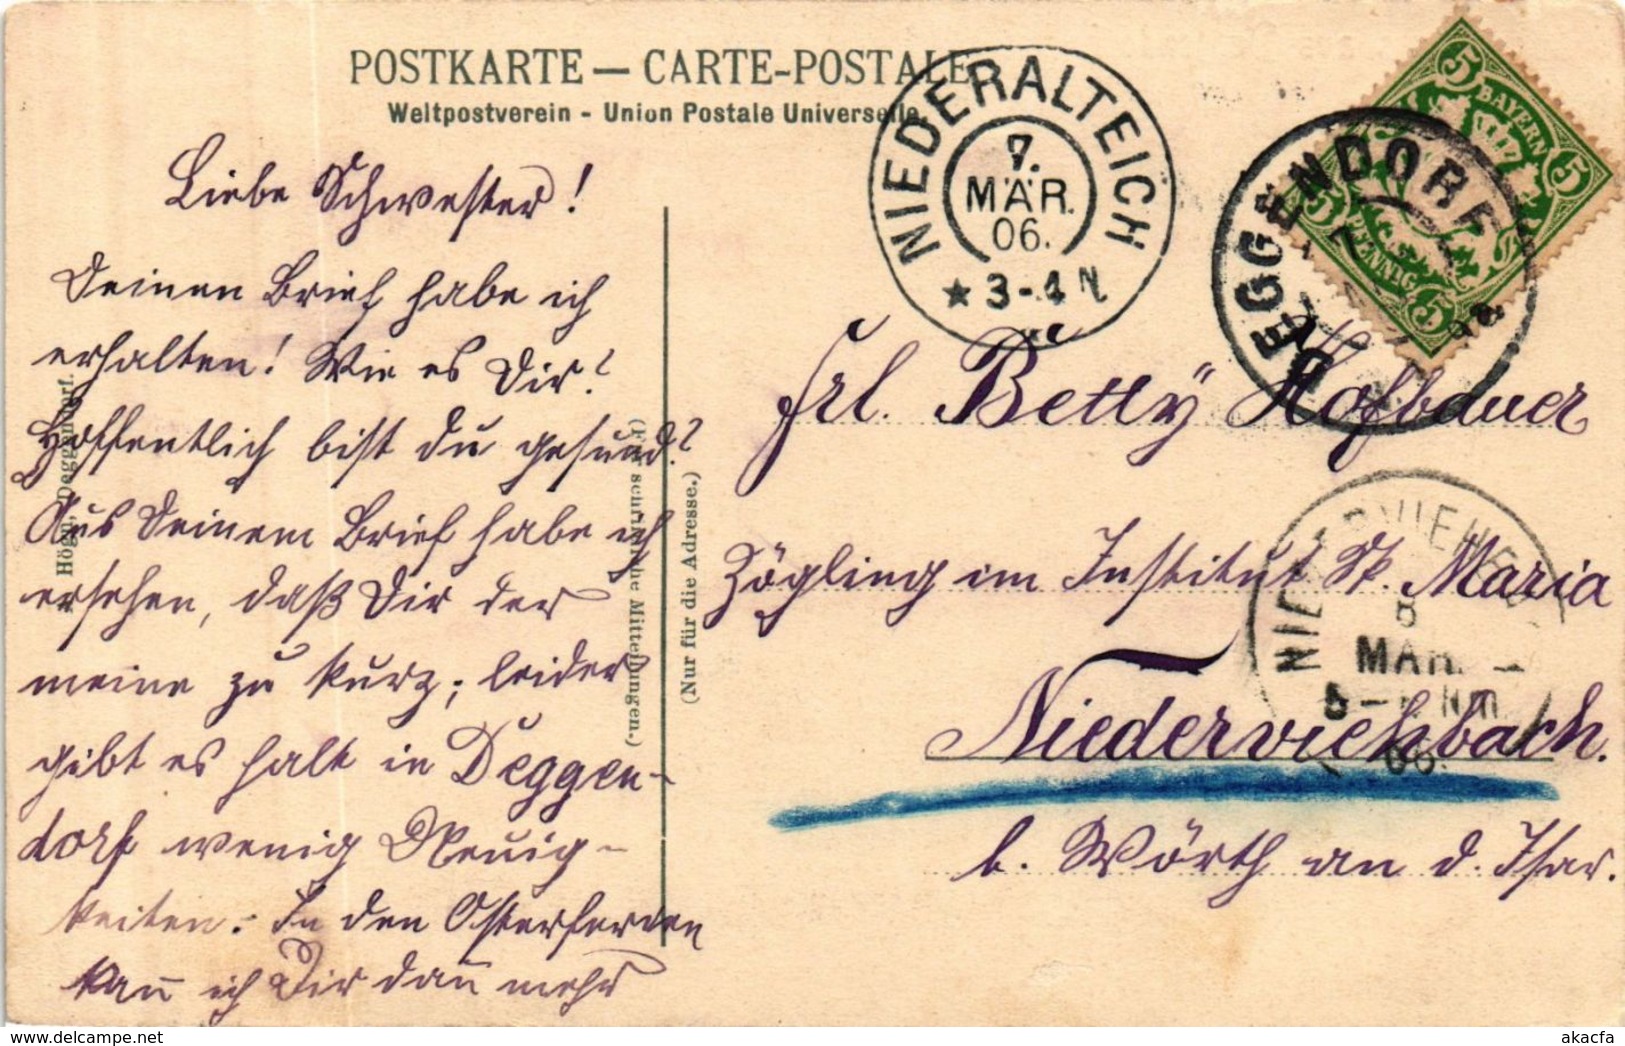 POSTKARTE — CARTE-POSTALE
Weltpostverein - Union Postale Universelle
NIEDERALTEICH
7.
MÄR.
06.
3-4 N
BAYERN
5
5
5
5
PFENNIG
DEGGENDORF
Liebe Schwester!
Deinen Brief habe ich
erhalten! Wie es Dir?
Hoffentlich bist du gesund?
Aus Deinem Brief habe ich
ersehen, daß Dir der
meine zu kurz; leider
gibt es halt in Deggen-
dorf wenig Neuig-
keiten. In den Osterferien
kann ich Dir dann mehr
Högn, Deggendorf.
(Für schriftliche Mitteilungen.)
(Nur für die Adresse.)
Frl. Betty Hofbauer
Zögling im Institut St. Maria
Niederviehbach.
b. Wörth an d. Isar.
NIEDERVIEHBACH
8
MÄR.
06.
akacfa
delcampe.net